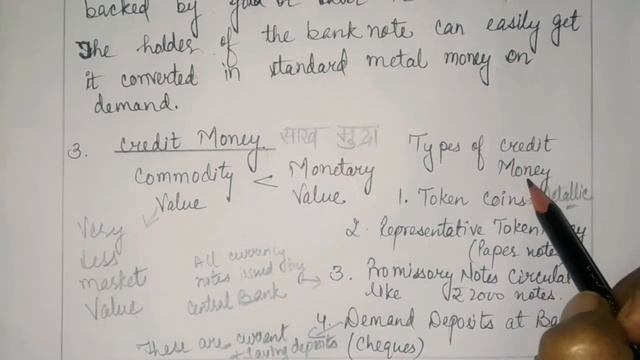 backed by
The holder of the bank note can easily get
it converted in standard metal money on
demand.
3. Credit Money साख मुद्रा
Commodity Value < Monetary Value
Very
Less
market
Value
All currency
notes issued by
central Bank
Types of credit
Money
1. Token coins Metallic
2. Representative Token
(Paper note
3. Promissory Notes Circula
like ₹2000 notes.
4. Demand Deposits at Ba
(Cheques)
These are current
+ saving deposits